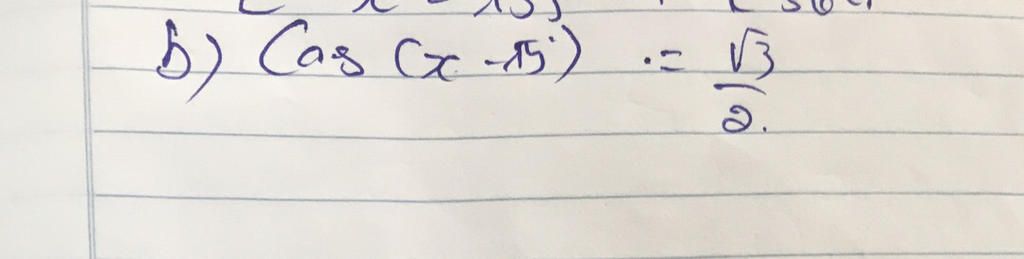 b) Cos (x - 15°) = √3/2.